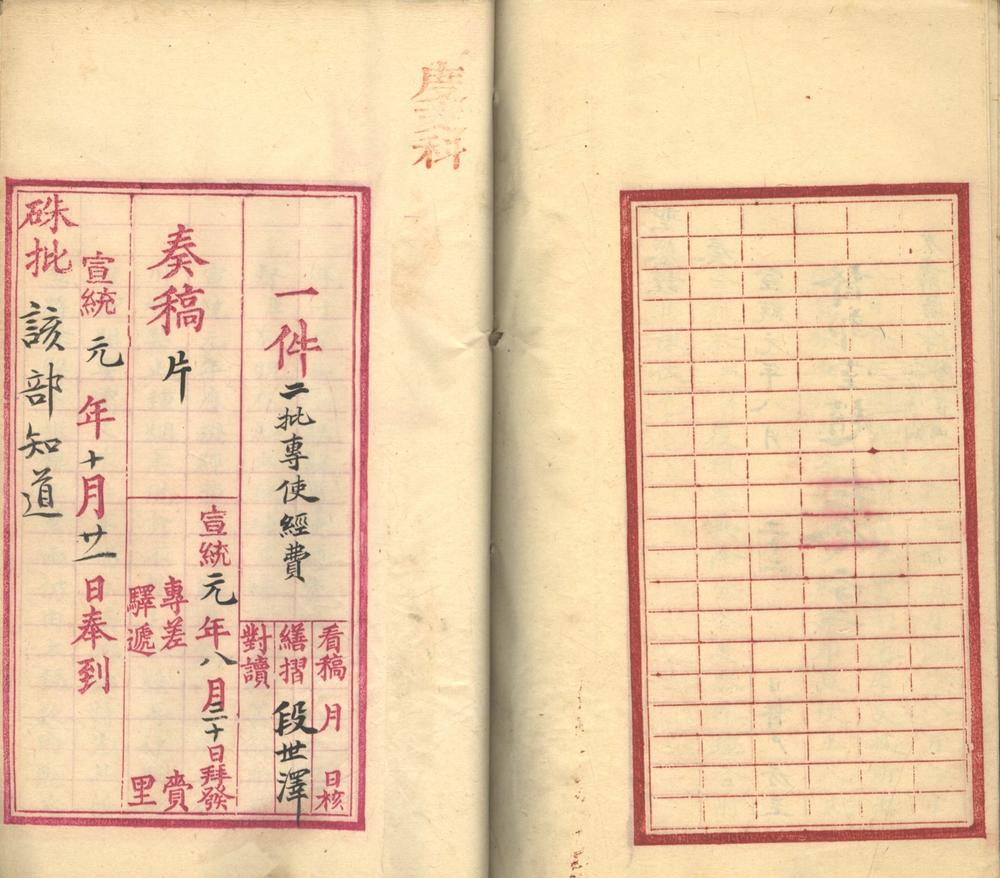 度支科
一件二批專使經費
看稿 月 日核
繕摺 段世澤
對讀
奏稿片
宣統元年八月三十日拜發
專差 賫
驛遞 里
宣統元年十月廿一日奉到
硃批該部知道